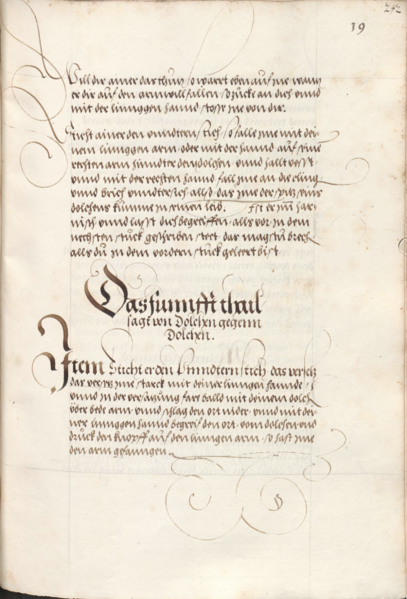 19
Will dir ainer dar thun, so wart eben auf jne wann
er dir auf den arm will fallen, drucke an dich vnnd
mit der linnggen hannd, stoss jne von dir.
Sticht ainer den vnndtern stich, so falle jme mit dei-
nem linnggen arm oder mit der hannd auf seine
rechten arm hinndter den dolchen vnnd halt vest
vnnd mit der rechten hannd fall jme an die cling
vnnd brich vnndtersich allso das jme der spitz
dolchens kumme in seinen leib. Ist er jnn har-
nisch vnnd lasst dich begreiffen, als vor in dem
nechsten stuck geschriben steet das magstu brech
alls du in dem vordern stuck geleret bist
Das funnfft thail
sagt von Dolchen gegenn
Dolchen.
Item Sticht er den Vnndtern stich, das versetz
jme starck mit deiner linngen hannde,
vnnd in der versatzung far balld mit deinem dolch
vber bede arm vnnd schlag den ort nider vnnd mit dei-
ner linnggen hannd begreif den ort vom dolchen vnd
druck den knopff auf den linngen arm, so hast jme
den arm gefanngen